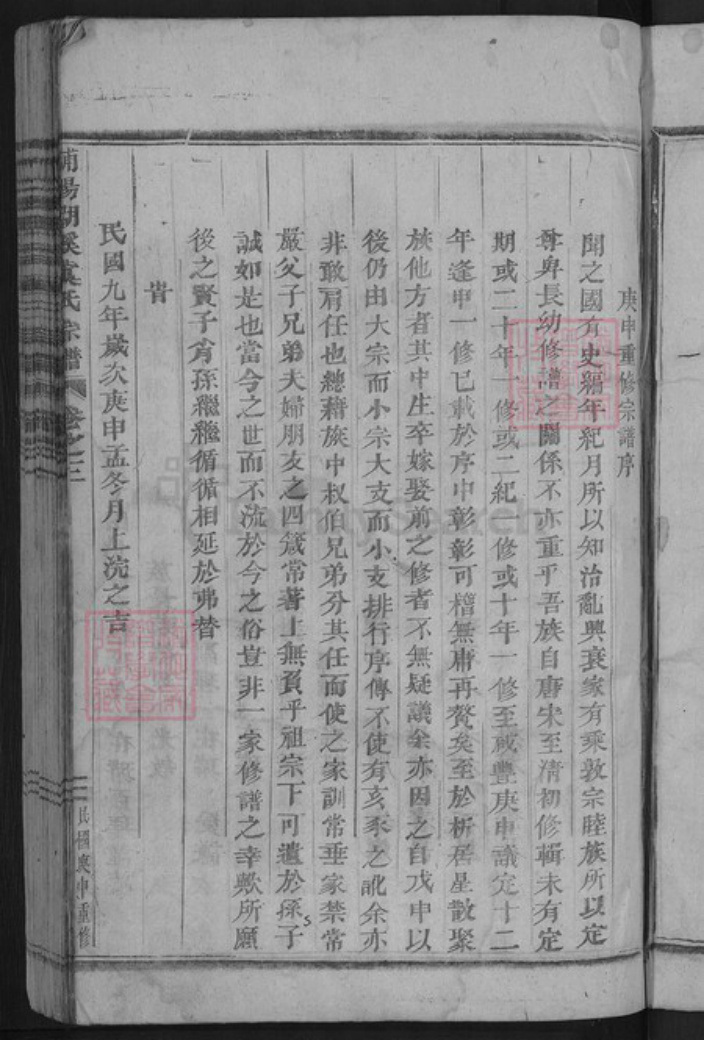 庚申重修宗譜序
聞之國有史編年紀月所以知治亂興衰家有乘敦宗睦族所以定
尊卑長幼修譜之關係不亦重乎吾族自唐宋至清初修輯未有定
期或二十年一修或二紀一修或十年一修至咸豐庚申議定十二
年逢申一修已載於序中彰彰可稽無庸再贅矣至於析居星散聚
族他方者其中生卒嫁娶前之修者不無疑議余亦因之自戊申以
後仍由大宗而小宗大支而小支排行序傳不使有亥豕之訛余亦
非敢肩任也總藉族中叔伯兄弟分其任而使之家訓常垂家禁常
嚴父子兄弟夫婦朋友之四箴常著上無負乎祖宗下可遺於孫子
誠如是也當今之世而不流於今之俗豈非一家修譜之幸歟所願
後之賢子肖孫繼繼循循相延於弗替
旹
民國九年歲次庚申孟冬月上浣之吉
浦陽湖溪虞氏宗譜 卷之二
民國庚申重修
FamilySearch